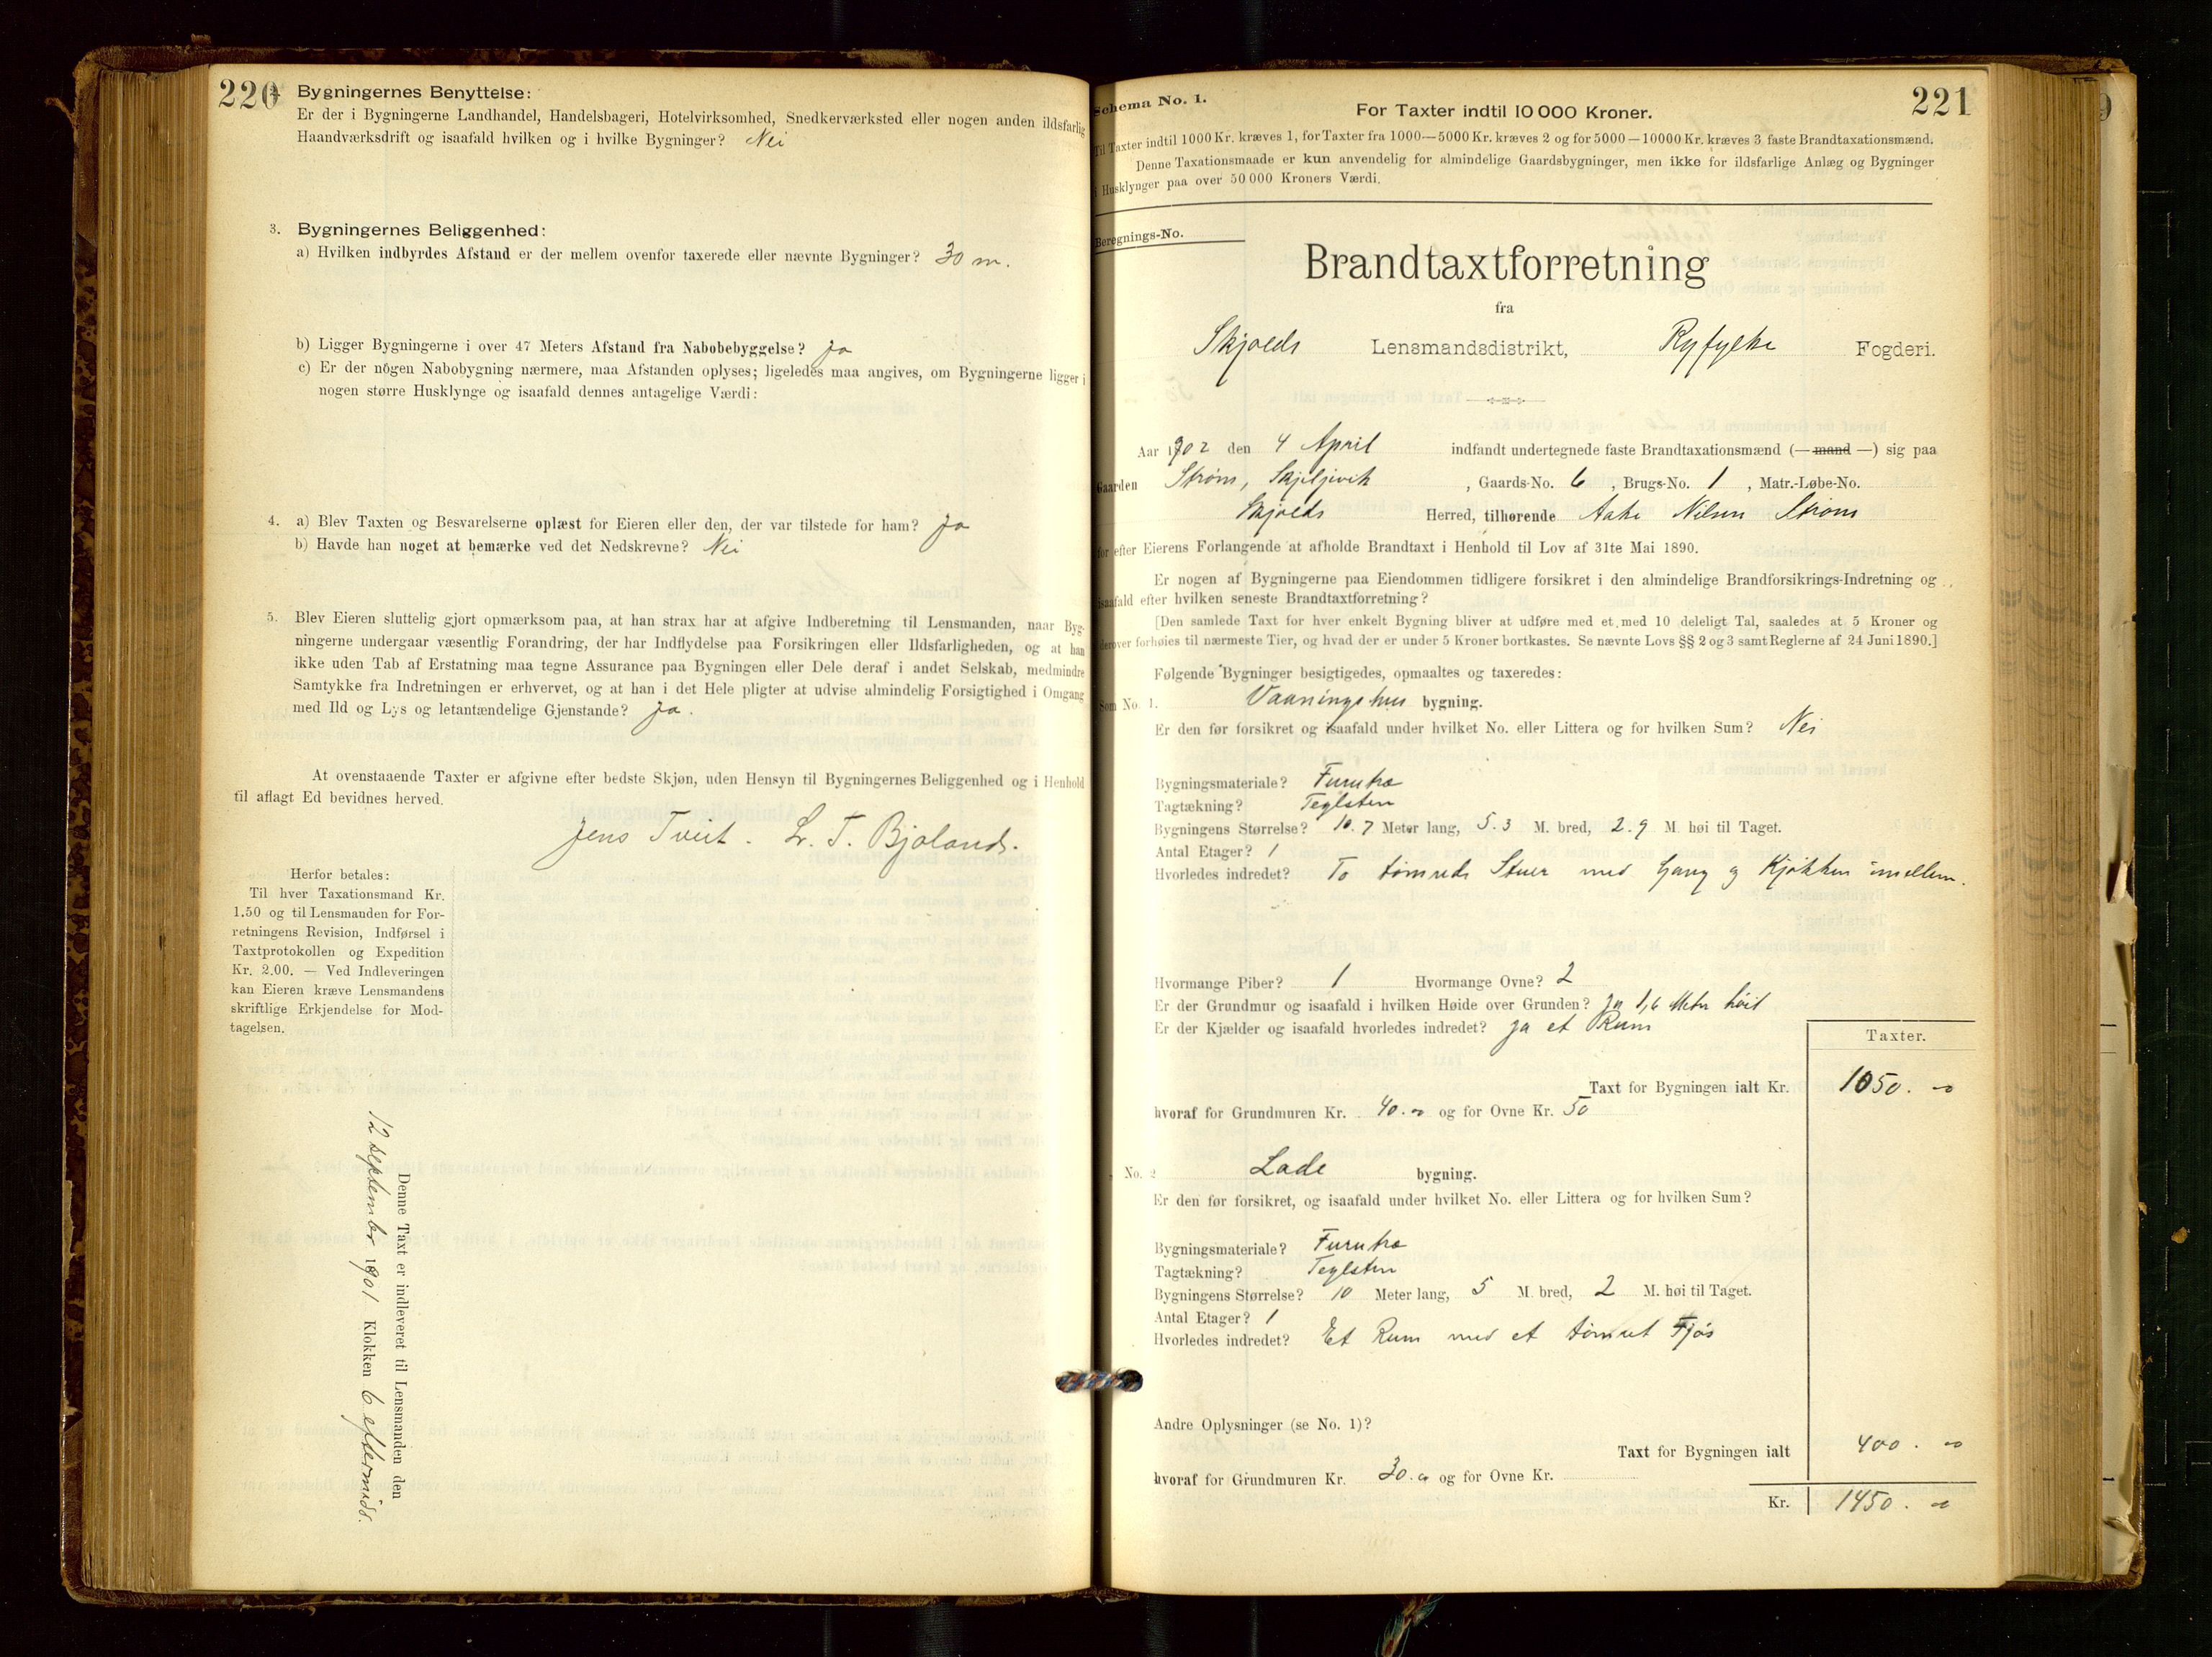 220
Bygningernes Benyttelse:
Er der i Bygningerne Landhandel, Handelsbageri, Hotelvirksomhed, Snedkerværksted eller nogen anden ildsfarlig
Haandværksdrift og isaafald hvilken og i hvilke Bygninger? Nei
3. Bygningernes Beliggenhed:
a) Hvilken indbyrdes Afstand er der mellem ovenfor taxerede eller nævnte Bygninger? 30 m.
b) Ligger Bygningerne i over 47 Meters Afstand fra Nabobebyggelse? Ja
c) Er der nogen Nabobygning nærmere, maa Afstanden oplyses; ligeledes maa angives, om Bygningerne ligger i
nogen større Husklynge og isaafald dennes antagelige Værdi:
4. a) Blev Taxten og Besvarelserne oplæst for Eieren eller den, der var tilstede for ham? Ja
b) Havde han noget at bemærke ved det Nedskrevne? Nei
5. Blev Eieren sluttelig gjort opmærksom paa, at han strax har at afgive Indberetning til Lensmanden, naar Byg-
ningerne undergaar væsentlig Forandring, der har Indflydelse paa Forsikringen eller Ildsfarligheden, og at han
ikke uden Tab af Erstatning maa tegne Assurance paa Bygningen eller Dele deraf i andet Selskab, medmindre
Samtykke fra Indretningen er erhvervet, og at han i det Hele pligter at udvise almindelig Forsigtighed i Omgang
med Ild og Lys og letantændelige Gjenstande? Ja.
At ovenstaaende Taxter er afgivne efter bedste Skjøn, uden Hensyn til Bygningernes Beliggenhed og i Henhold
til aflagt Ed bevidnes herved.
Jens Tveit. L. T. Bjoland.
Herfor betales:
Til hver Taxationsmand Kr.
1.50 og til Lensmanden for For-
retningens Revision, Indførsel i
Taxtprotokollen og Expedition
Kr. 2.00. — Ved Indleveringen
kan Eieren kræve Lensmandens
skriftlige Erkjendelse for Mod-
tagelsen.
Denne Taxt er indleveret til Lensmanden den
12 september 1901 Klokken 6 eftermidd.
221
Schema No. 1.
For Taxter indtil 10 000 Kroner.
Til Taxter indtil 1000 Kr. kræves 1, for Taxter fra 1000—5000 Kr. kræves 2 og for 5000—10000 Kr. kræves 3 faste Brandtaxationsmænd.
Denne Taxationsmaade er kun anvendelig for almindelige Gaardsbygninger, men ikke for ildsfarlige Anlæg og Bygninger
i Husklynger paa over 50 000 Kroners Værdi.
Beregnings-No.
Brandtaxtforretning
fra
Skjolds Lensmandsdistrikt, Ryfylke Fogderi.
Aar 1902 den 4 April indfandt undertegnede faste Brandtaxationsmænd (—mand—) sig paa
Gaarden Strøm, Skjeljevik, Gaards-No. 6, Brugs-No. 1, Matr.-Løbe-No.
Skjolds Herred, tilhørende Aake Nilsen Strøm
for efter Eierens Forlangende at afholde Brandtaxt i Henhold til Lov af 31te Mai 1890.
Er nogen af Bygningerne paa Eiendommen tidligere forsikret i den almindelige Brandforsikrings-Indretning og
isaafald efter hvilken seneste Brandtaxtforretning?
[Den samlede Taxt for hver enkelt Bygning bliver at udføre med et med 10 deleligt Tal, saaledes at 5 Kroner og
derover forhøies til nærmeste Tier, og hvad der er under 5 Kroner bortkastes. Se nævnte Lovs §§ 2 og 3 samt Reglerne af 24 Juni 1890.]
Følgende Bygninger besigtigedes, opmaaltes og taxeredes:
Som No. 1. Vaaningshus bygning.
Er den før forsikret og isaafald under hvilket No. eller Littera og for hvilken Sum? Nei
Bygningsmateriale? Furutræ
Tagtækning? Teglsten
Bygningens Størrelse? 10.7 Meter lang, 5.3 M. bred, 2.9 M. høi til Taget.
Antal Etager? 1
Hvorledes indredet? To tømrede Stuer med Gang og Kjøkken imellem.
Hvormange Piber? 1 Hvormange Ovne? 2
Er der Grundmur og isaafald i hvilken Høide over Grunden? Ja 1,6 Meter høit
Er der Kjælder og isaafald hvorledes indredet? Ja et Rum
Taxter.
Taxt for Bygningen ialt Kr. 1050. "
hvoraf for Grundmuren Kr. 40." og for Ovne Kr. 50
No. 2 Lade bygning.
Er den før forsikret, og isaafald under hvilket No. eller Littera og for hvilken Sum?
Bygningsmateriale? Furutræ
Tagtækning? Teglsten
Bygningens Størrelse? 10 Meter lang, 5 M. bred, 2 M. høi til Taget.
Antal Etager? 1
Hvorledes indredet? Et Rum med et tømret Fjøs
Andre Oplysninger (se No. 1)?
Taxt for Bygningen ialt 400. "
hvoraf for Grundmuren Kr. 30." og for Ovne Kr.
Kr. 1450. "